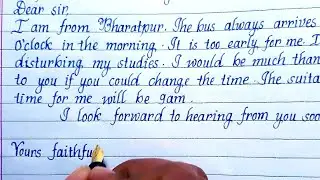 Dear sir,
I am from Bharatpur. The bus always arrives
o'clock in the morning. It is too early for me. I
disturbing my studies. I would be much than
to you if you could change the time. The suita
time for me will be 9am.
I look forward to hearing from you soo
Yours faithfu